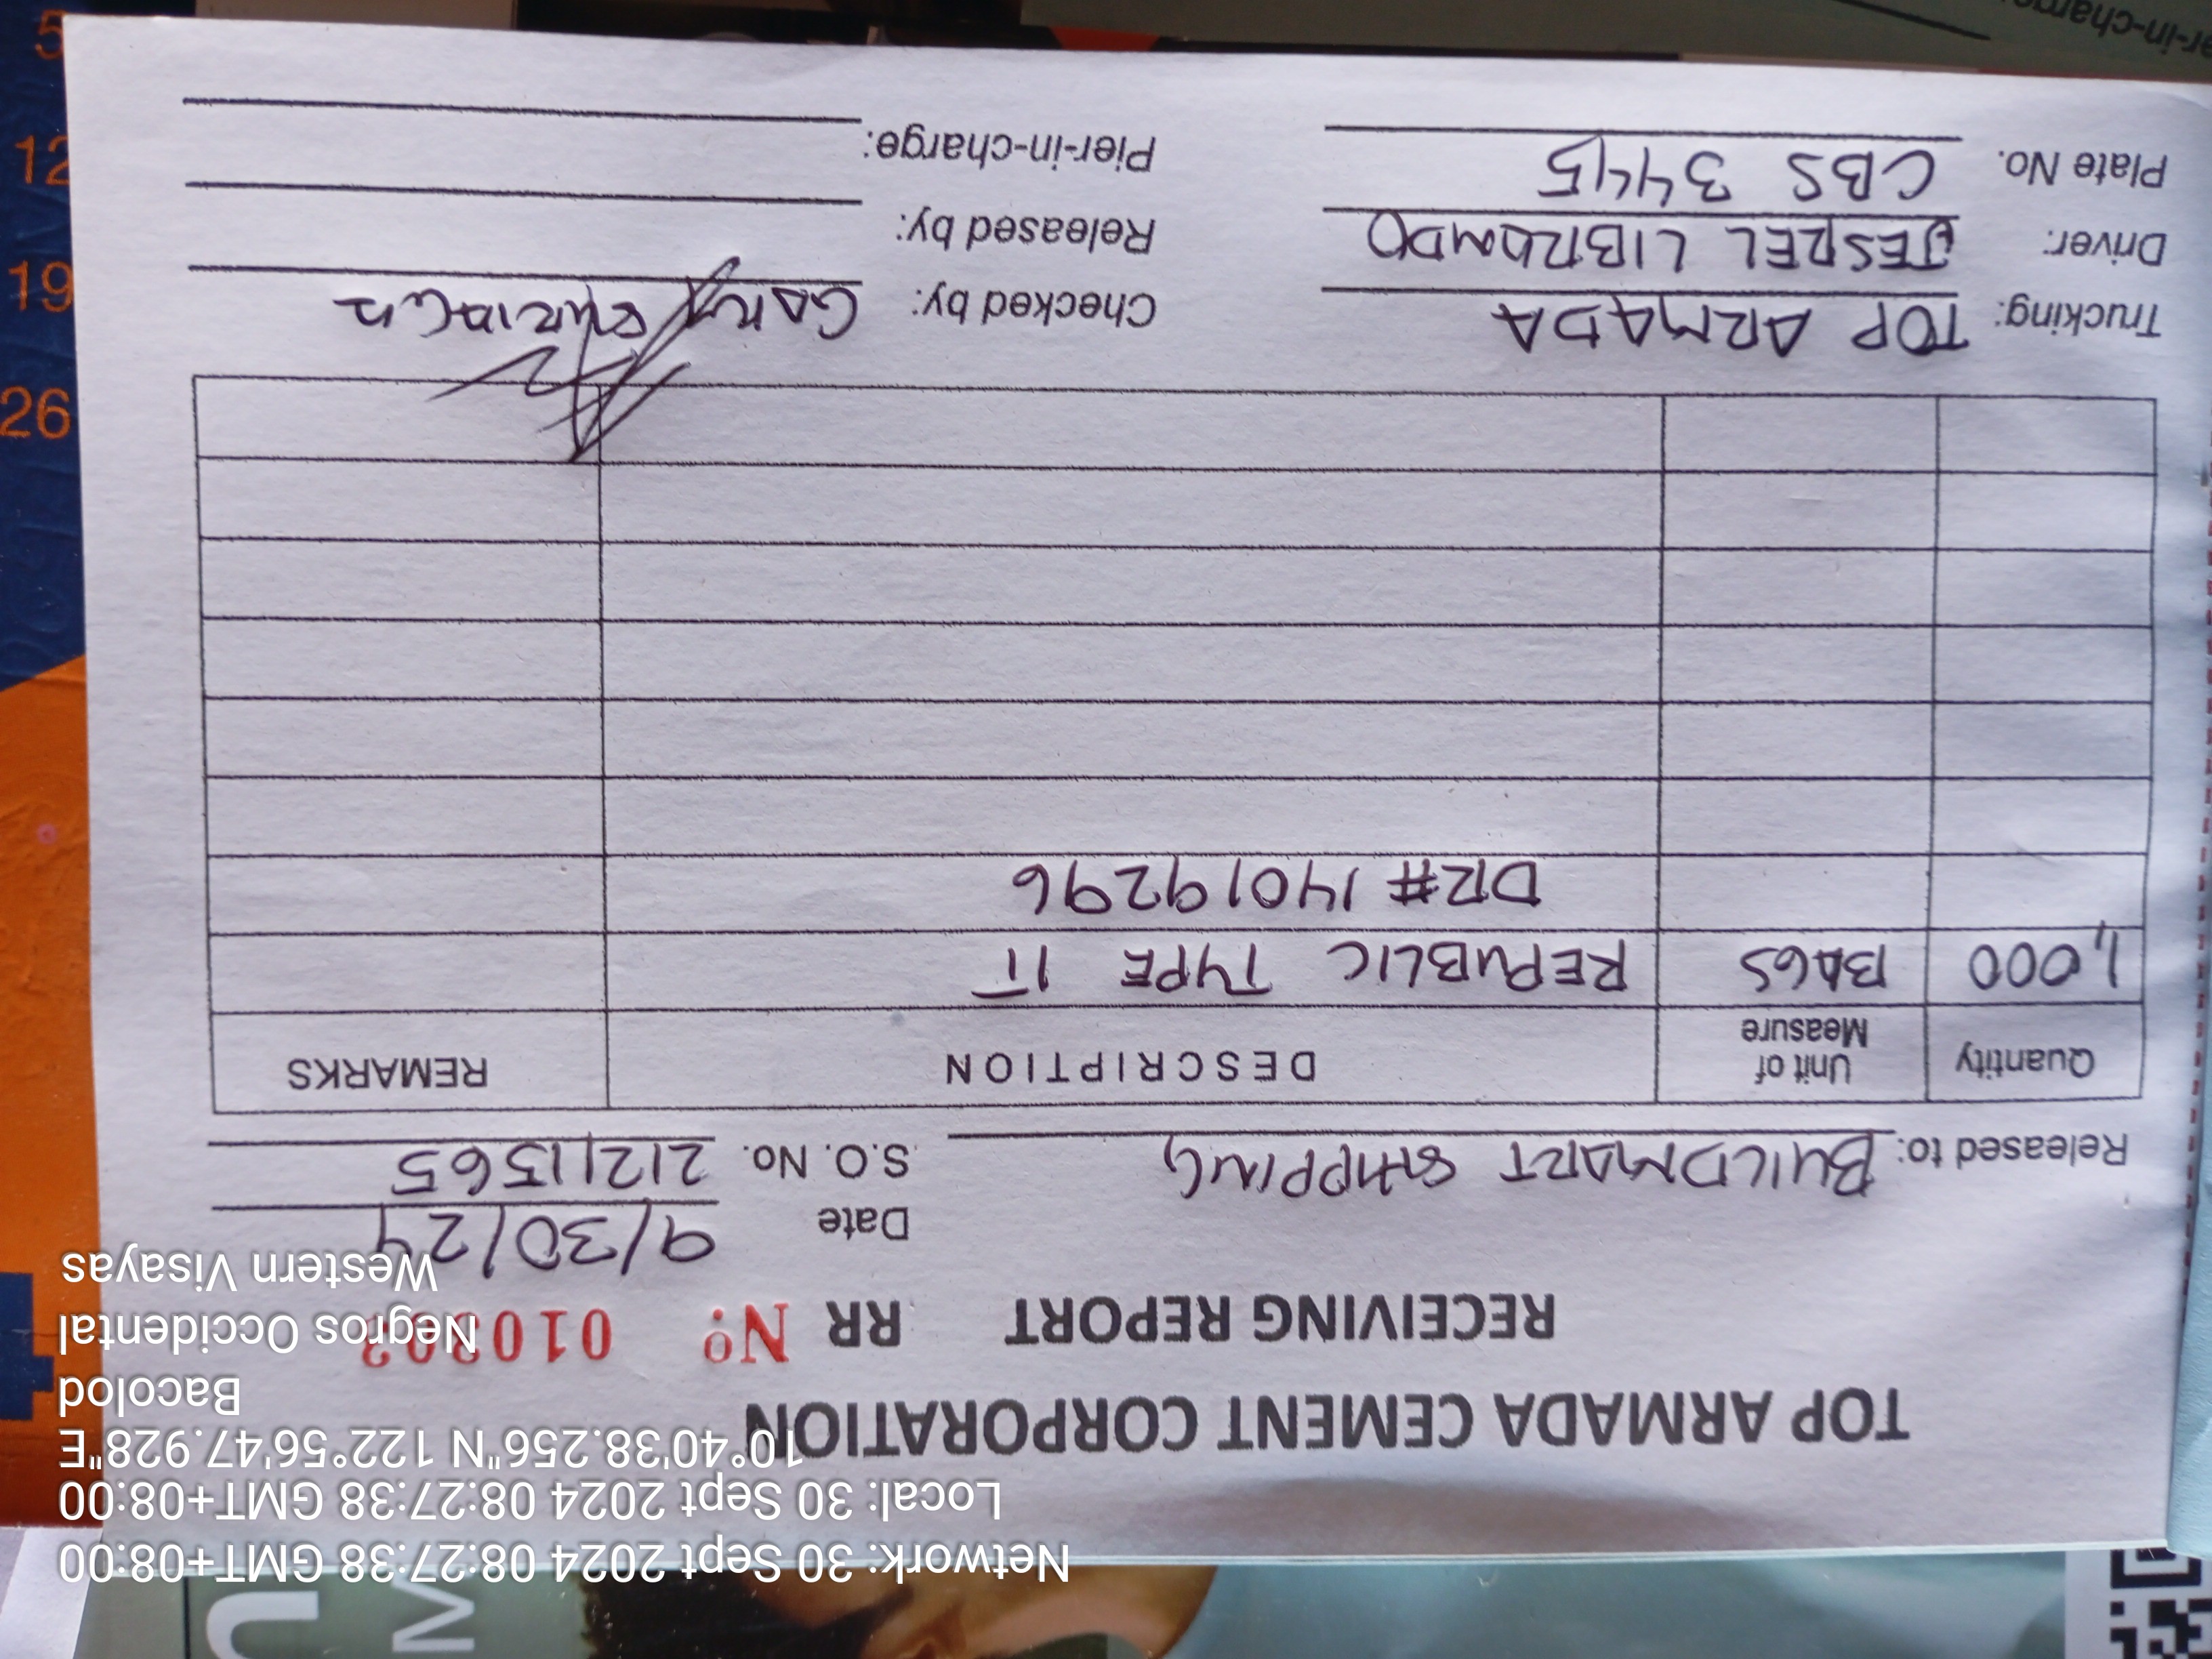 Network: 30 Sept 2024 08:27:38 GMT+08:00
Local: 30 Sept 2024 08:27:38 GMT+08:00
10°40'38.256"N 122°56'47.928"E
Bacolod
Negros Occidental
Western Visayas
TOP ARMADA CEMENT CORPORATION
RECEIVING REPORT RR Nº
Date 9/30/24
Released to: BUILDMART SHIPPING S.O. No. 21211565
Quantity Unit of Measure DESCRIPTION REMARKS
1,000 BAGS REPUBLIC TYPE 1T
DR# 14019296
Trucking: TOP ARMADA Checked by: GARY
Driver: JESREL LIBRANDO Released by:
Plate No. CBS 3445 Pier-in-charge:
er-in-charge
5
12
19
26
M
U